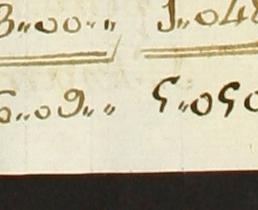 3〃00〃〃 1〃048
6〃09〃〃 5〃050